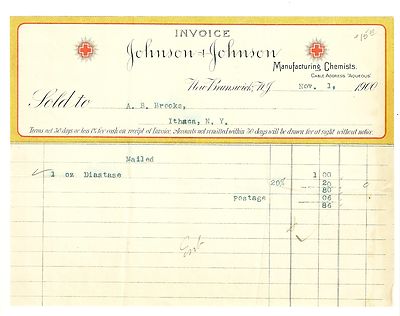 INVOICE
Johnson & Johnson
Manufacturing Chemists.
CABLE ADDRESS "AQUEOUS"
New Brunswick, N.J. Nov. 1, 1900
Sold to A. B. Brooks,
Ithaca, N. Y.
Terms net 30 days or less 1% for cash on receipt of Invoice. Accounts not remitted within 30 days will be drawn for at sight without notice.
Mailed
✓ 1 oz Diastase 1 00
20% 20
80
Postage 06
86